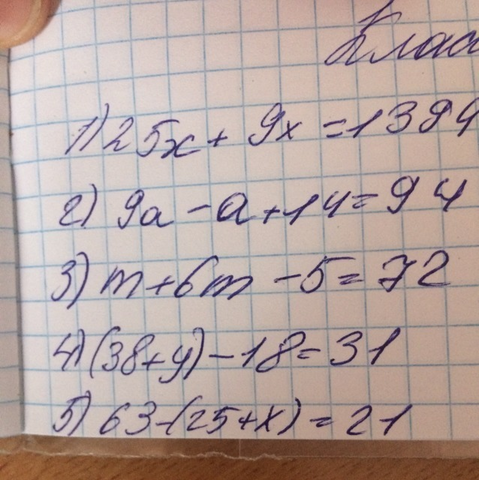 Клас
1) 25x + 9x = 1394
2) 9a - a + 14 = 94
3) m + 6m - 5 = 72
4) (38 + y) - 18 = 31
5) 63 - (25 + x) = 21